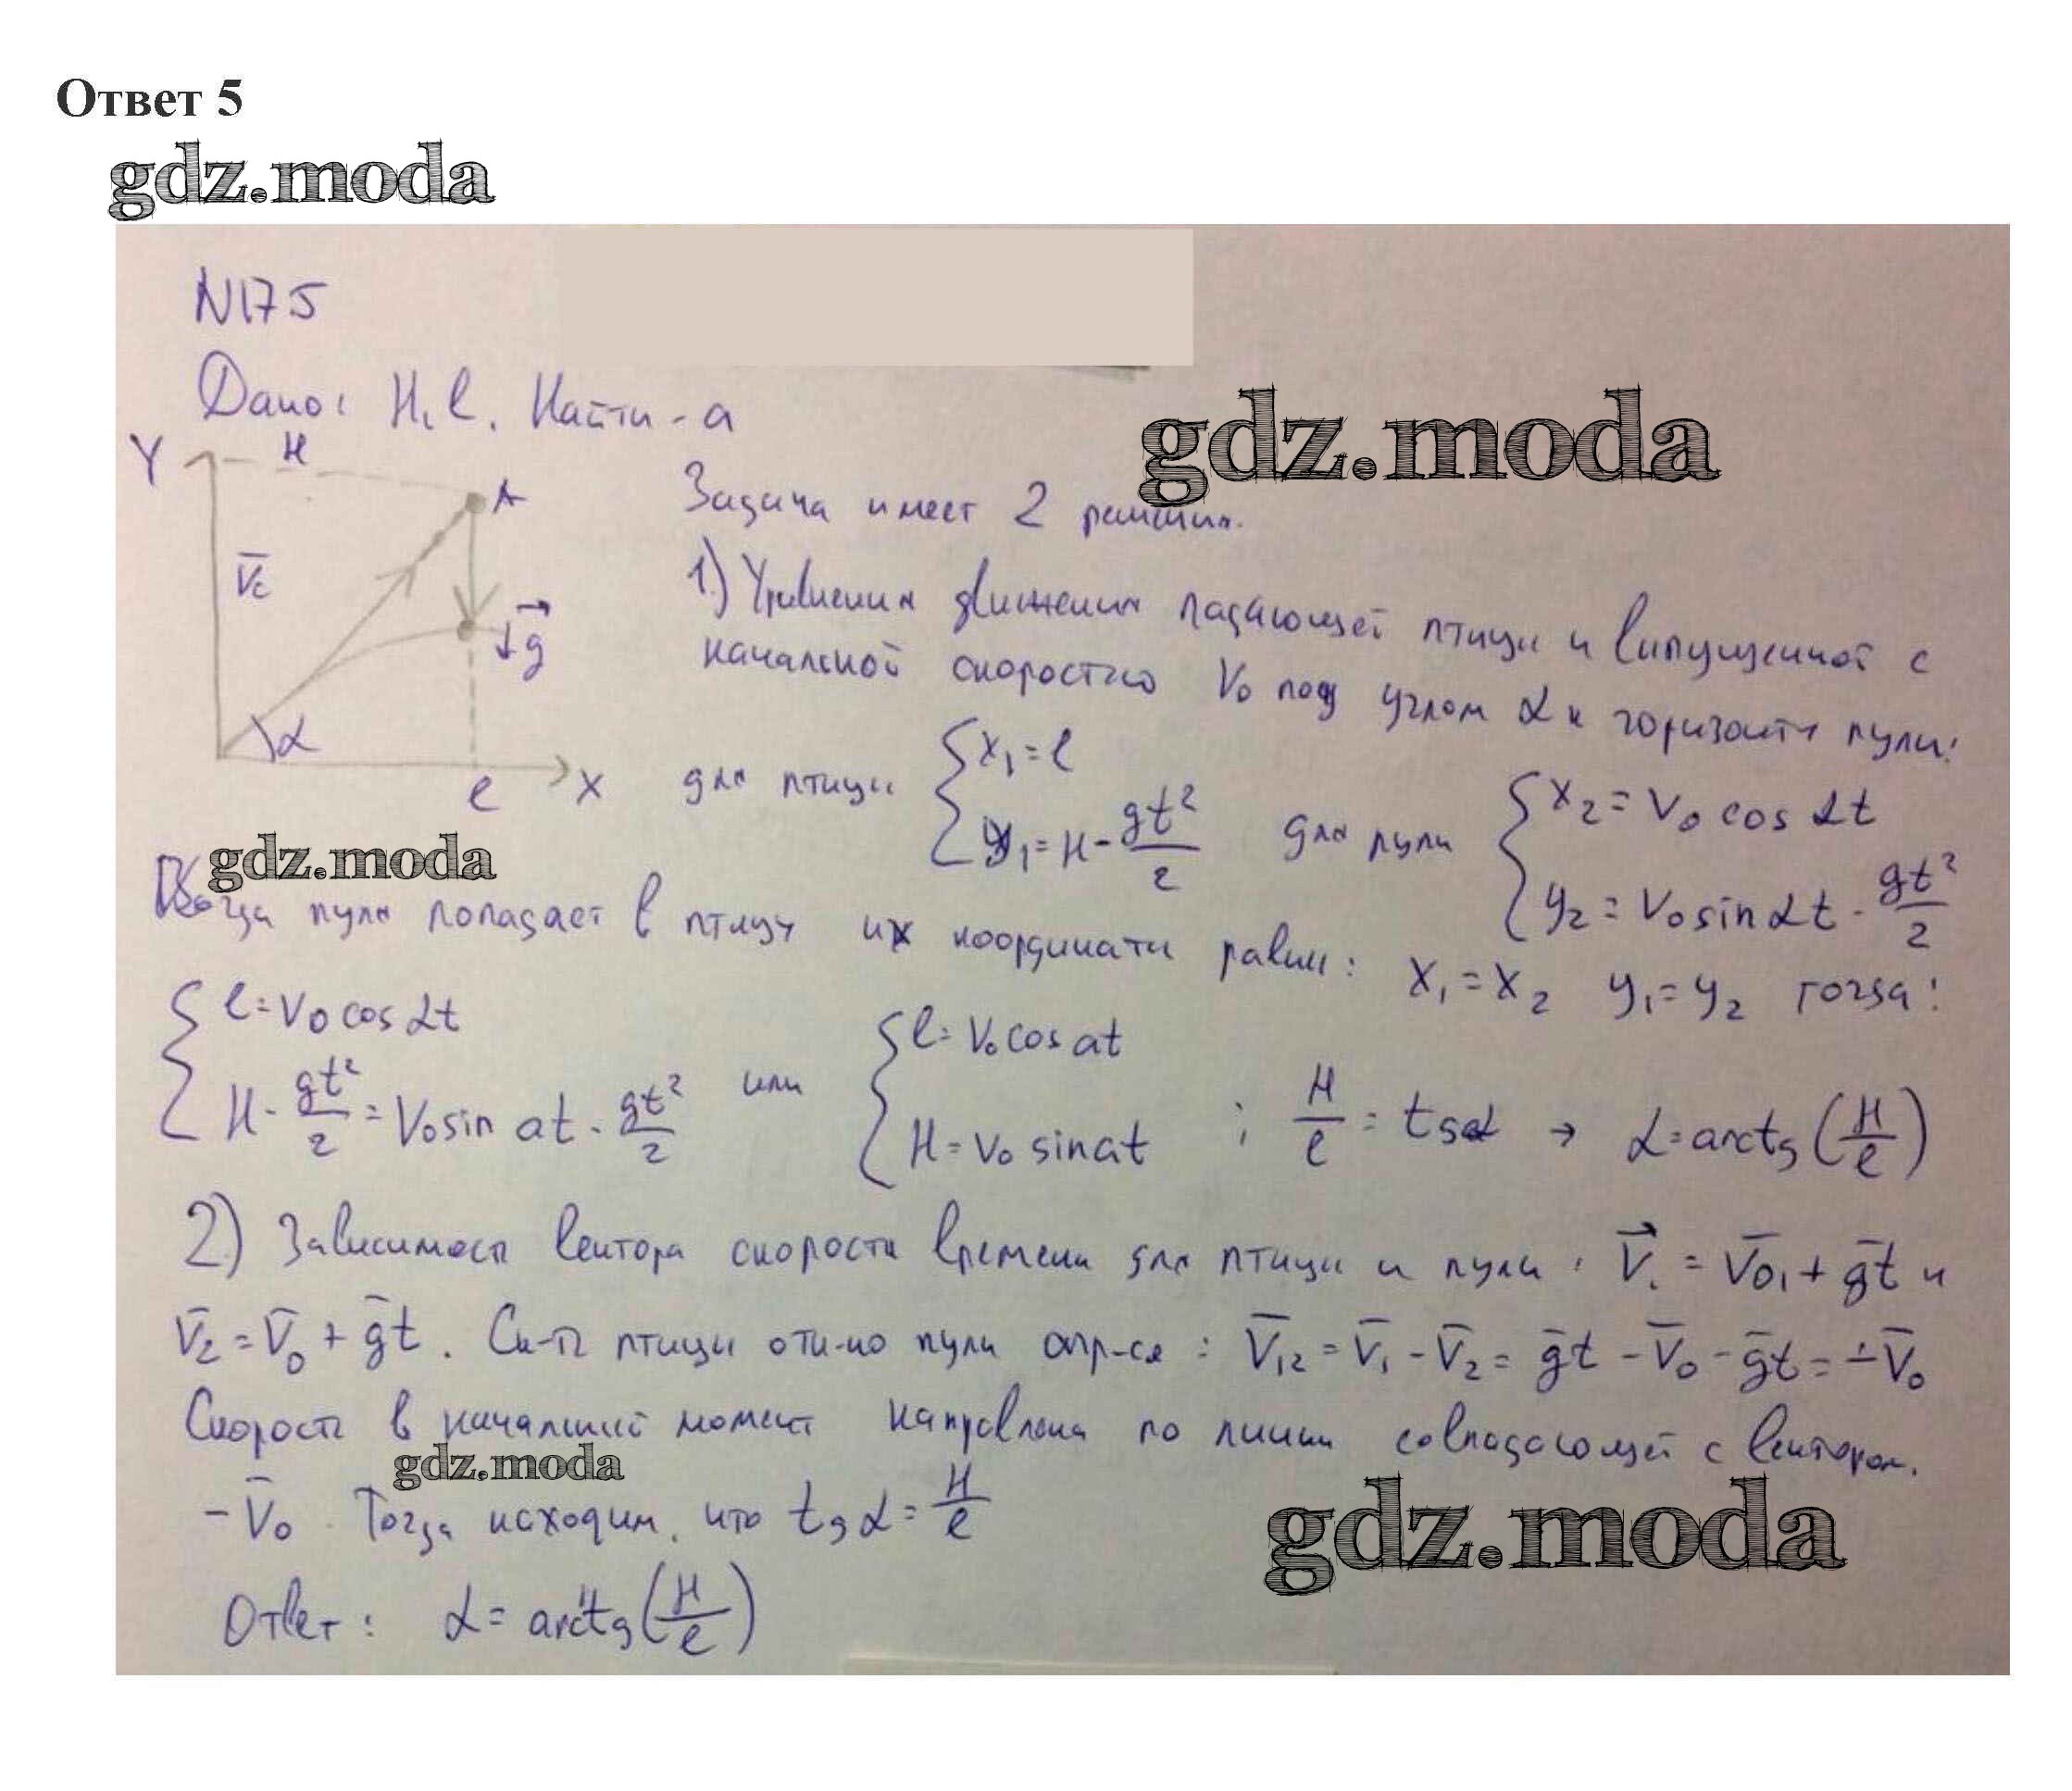 Ответ 5
gdz.moda
N175
Дано: H, l. Найти - a
gdz.moda
Y H A
V̄c
↓g⃗
α
l X
Задача имеет 2 решения.
1) Уравнения движения падающей птицы и выпущенной с
начальной скоростью V₀ под углом α к горизонту пули:
для птицы { x₁ = l
y₁ = H - gt²/2
для пули { x₂ = V₀ cos αt
y₂ = V₀ sin αt - gt²/2
gdz.moda
Когда пуля попадает в птицу их координаты равны: x₁ = x₂ y₁ = y₂ тогда:
{ l = V₀ cos αt
H - gt²/2 = V₀ sin at - gt²/2
или { l = V₀ cos at
H = V₀ sin at
; H/l = tgα → α = arctg(H/l)
2) Зависимость вектора скорости времени для птицы и пули: V⃗₁ = V̄₀₁ + ḡt и
V̄₂ = V̄₀ + ḡt. Ск-ть птицы отн-но пули опр-ся: V̄₁₂ = V̄₁ - V̄₂ = ḡt - V̄₀ - ḡt = -V̄₀
Скорость в начальный момент направлена по линии совпадающей с вектором.
gdz.moda
-V̄₀. Тогда исходим, что tgα = H/l
gdz.moda
Ответ: α = arctg(H/l)